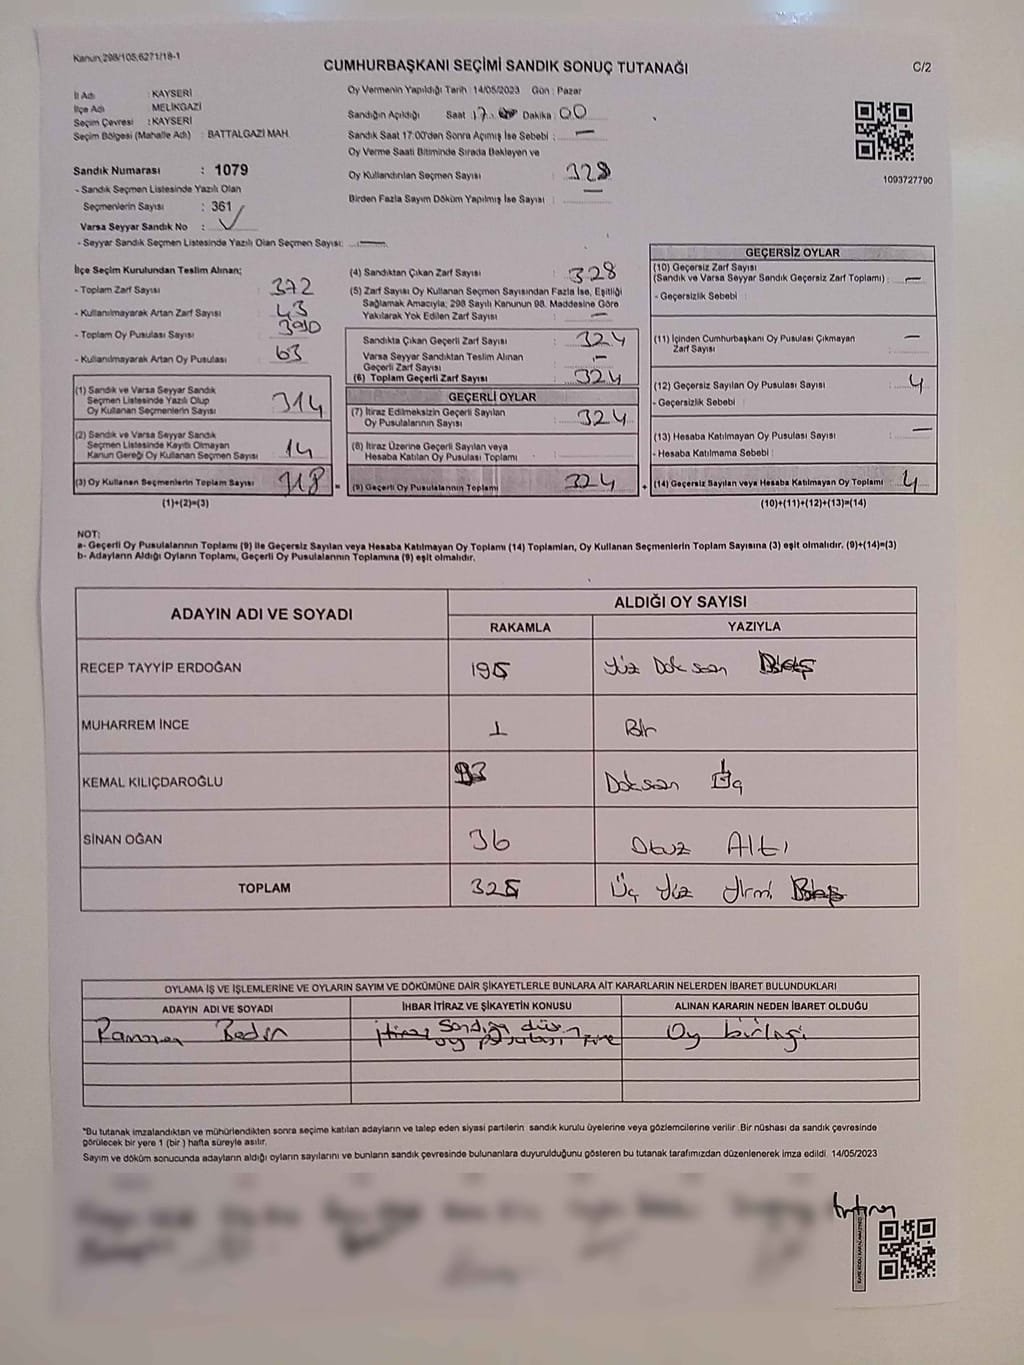 Kanun;298/105;6271/18-1
CUMHURBAŞKANI SEÇİMİ SANDIK SONUÇ TUTANAĞI
C/2
İl Adı : KAYSERİ
İlçe Adı : MELİKGAZİ
Seçim Çevresi : KAYSERİ
Seçim Bölgesi (Mahalle Adı) : BATTALGAZİ MAH.
Sandık Numarası : 1079
- Sandık Seçmen Listesinde Yazılı Olan
Seçmenlerin Sayısı : 361
Varsa Seyyar Sandık No :
- Seyyar Sandık Seçmen Listesinde Yazılı Olan Seçmen Sayısı: —
Oy Vermenin Yapıldığı Tarih : 14/05/2023 Gün : Pazar
Sandığın Açıldığı Saat 17 Dakika 00
Sandık Saat 17:00'den Sonra Açılmış İse Sebebi : —
Oy Verme Saati Bitiminde Sırada Bekleyen ve
Oy Kullandırılan Seçmen Sayısı : 328
Birden Fazla Sayım Döküm Yapılmış İse Sayısı : —
1093727790
İlçe Seçim Kurulundan Teslim Alınan;
- Toplam Zarf Sayısı : 372
- Kullanılmayarak Artan Zarf Sayısı : 43
- Toplam Oy Pusulası Sayısı : 390
- Kullanılmayarak Artan Oy Pusulası : 63
(1) Sandık ve Varsa Seyyar Sandık
Seçmen Listesinde Yazılı Olup
Oy Kullanan Seçmenlerin Sayısı : 314
(2) Sandık ve Varsa Seyyar Sandık
Seçmen Listesinde Kayıtlı Olmayan
Kanun Gereği Oy Kullanan Seçmen Sayısı : 14
(3) Oy Kullanan Seçmenlerin Toplam Sayısı : 318
(1)+(2)=(3)
(4) Sandıktan Çıkan Zarf Sayısı : 328
(5) Zarf Sayısı Oy Kullanan Seçmen Sayısından Fazla İse, Eşitliği
Sağlamak Amacıyla; 298 Sayılı Kanunun 98. Maddesine Göre
Yakılarak Yok Edilen Zarf Sayısı : —
Sandıkta Çıkan Geçerli Zarf Sayısı : 324
Varsa Seyyar Sandıktan Teslim Alınan
Geçerli Zarf Sayısı : —
(6) Toplam Geçerli Zarf Sayısı : 324
GEÇERLİ OYLAR
(7) İtiraz Edilmeksizin Geçerli Sayılan
Oy Pusulalarının Sayısı : 324
(8) İtiraz Üzerine Geçerli Sayılan veya
Hesaba Katılan Oy Pusulası Toplamı :
(9) Geçerli Oy Pusulalarının Toplamı : 324
GEÇERSİZ OYLAR
(10) Geçersiz Zarf Sayısı
(Sandık ve Varsa Seyyar Sandık Geçersiz Zarf Toplamı) : —
- Geçersizlik Sebebi :
(11) İçinden Cumhurbaşkanı Oy Pusulası Çıkmayan
Zarf Sayısı : —
(12) Geçersiz Sayılan Oy Pusulası Sayısı : 4
- Geçersizlik Sebebi :
(13) Hesaba Katılmayan Oy Pusulası Sayısı : —
- Hesaba Katılmama Sebebi :
(14) Geçersiz Sayılan veya Hesaba Katılmayan Oy Toplamı : 4
(10)+(11)+(12)+(13)=(14)
NOT;
a- Geçerli Oy Pusulalarının Toplamı (9) ile Geçersiz Sayılan veya Hesaba Katılmayan Oy Toplamı (14) Toplamları, Oy Kullanan Seçmenlerin Toplam Sayısına (3) eşit olmalıdır. (9)+(14)=(3)
b- Adayların Aldığı Oyların Toplamı, Geçerli Oy Pusulalarının Toplamına (9) eşit olmalıdır.
ADAYIN ADI VE SOYADI
ALDIĞI OY SAYISI
RAKAMLA YAZIYLA
RECEP TAYYİP ERDOĞAN 195 Yüz Doksan Beş
MUHARREM İNCE 1 Bir
KEMAL KILIÇDAROĞLU 93 Doksan Üç
SİNAN OĞAN 36 Otuz Altı
TOPLAM 325 Üç Yüz Yirmi Beş
OYLAMA İŞ VE İŞLEMLERİNE VE OYLARIN SAYIM VE DÖKÜMÜNE DAİR ŞİKAYETLERLE BUNLARA AİT KARARLARIN NELERDEN İBARET BULUNDUKLARI
ADAYIN ADI VE SOYADI İHBAR İTİRAZ VE ŞİKAYETİN KONUSU ALINAN KARARIN NEDEN İBARET OLDUĞU
itiraz Sandığa
oy pusulası
Oy birliği
"Bu tutanak imzalandıktan ve mühürlendikten sonra seçime katılan adayların ve talep eden siyasi partilerin sandık kurulu üyelerine veya gözlemcilerine verilir. Bir nüshası da sandık çevresinde
görülecek bir yere 1 (bir ) hafta süreyle asılır.
Sayım ve döküm sonucunda adayların aldığı oyların sayılarını ve bunların sandık çevresinde bulunanlara duyurulduğunu gösteren bu tutanak tarafımızdan düzenlenerek imza edildi. 14/05/2023